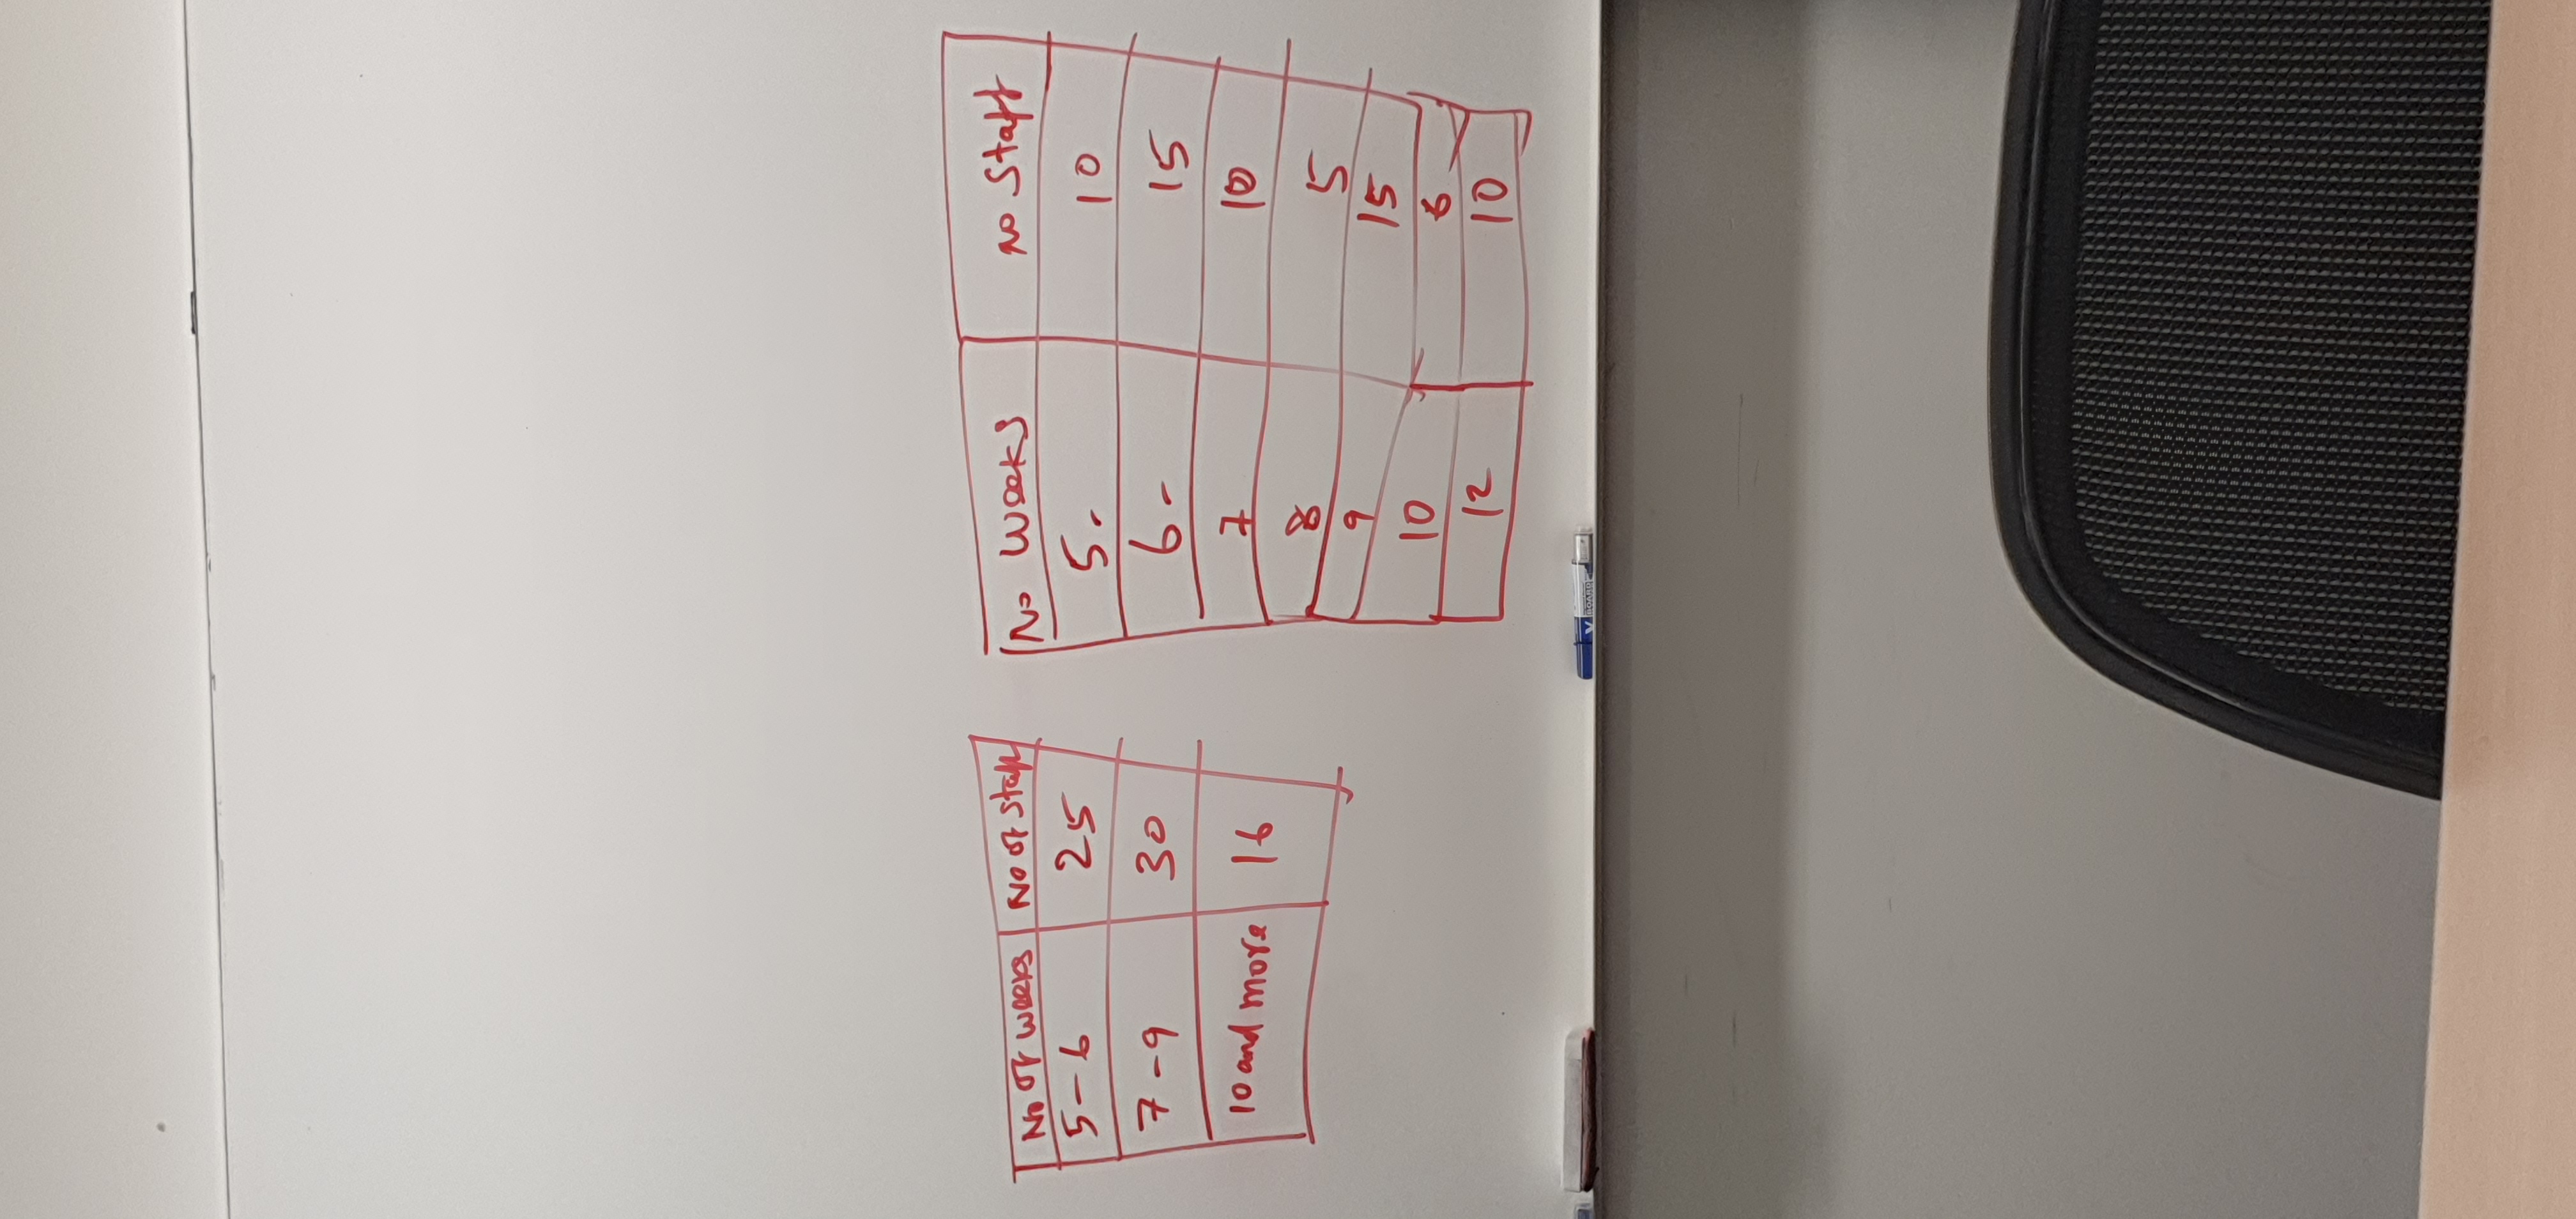 No of weeks No of staff
5-6 25
7-9 30
10 and more 16
No weeks No Staff
5. 10
6- 15
7 10
8 5
9 15
10 6
12 10
BOARD